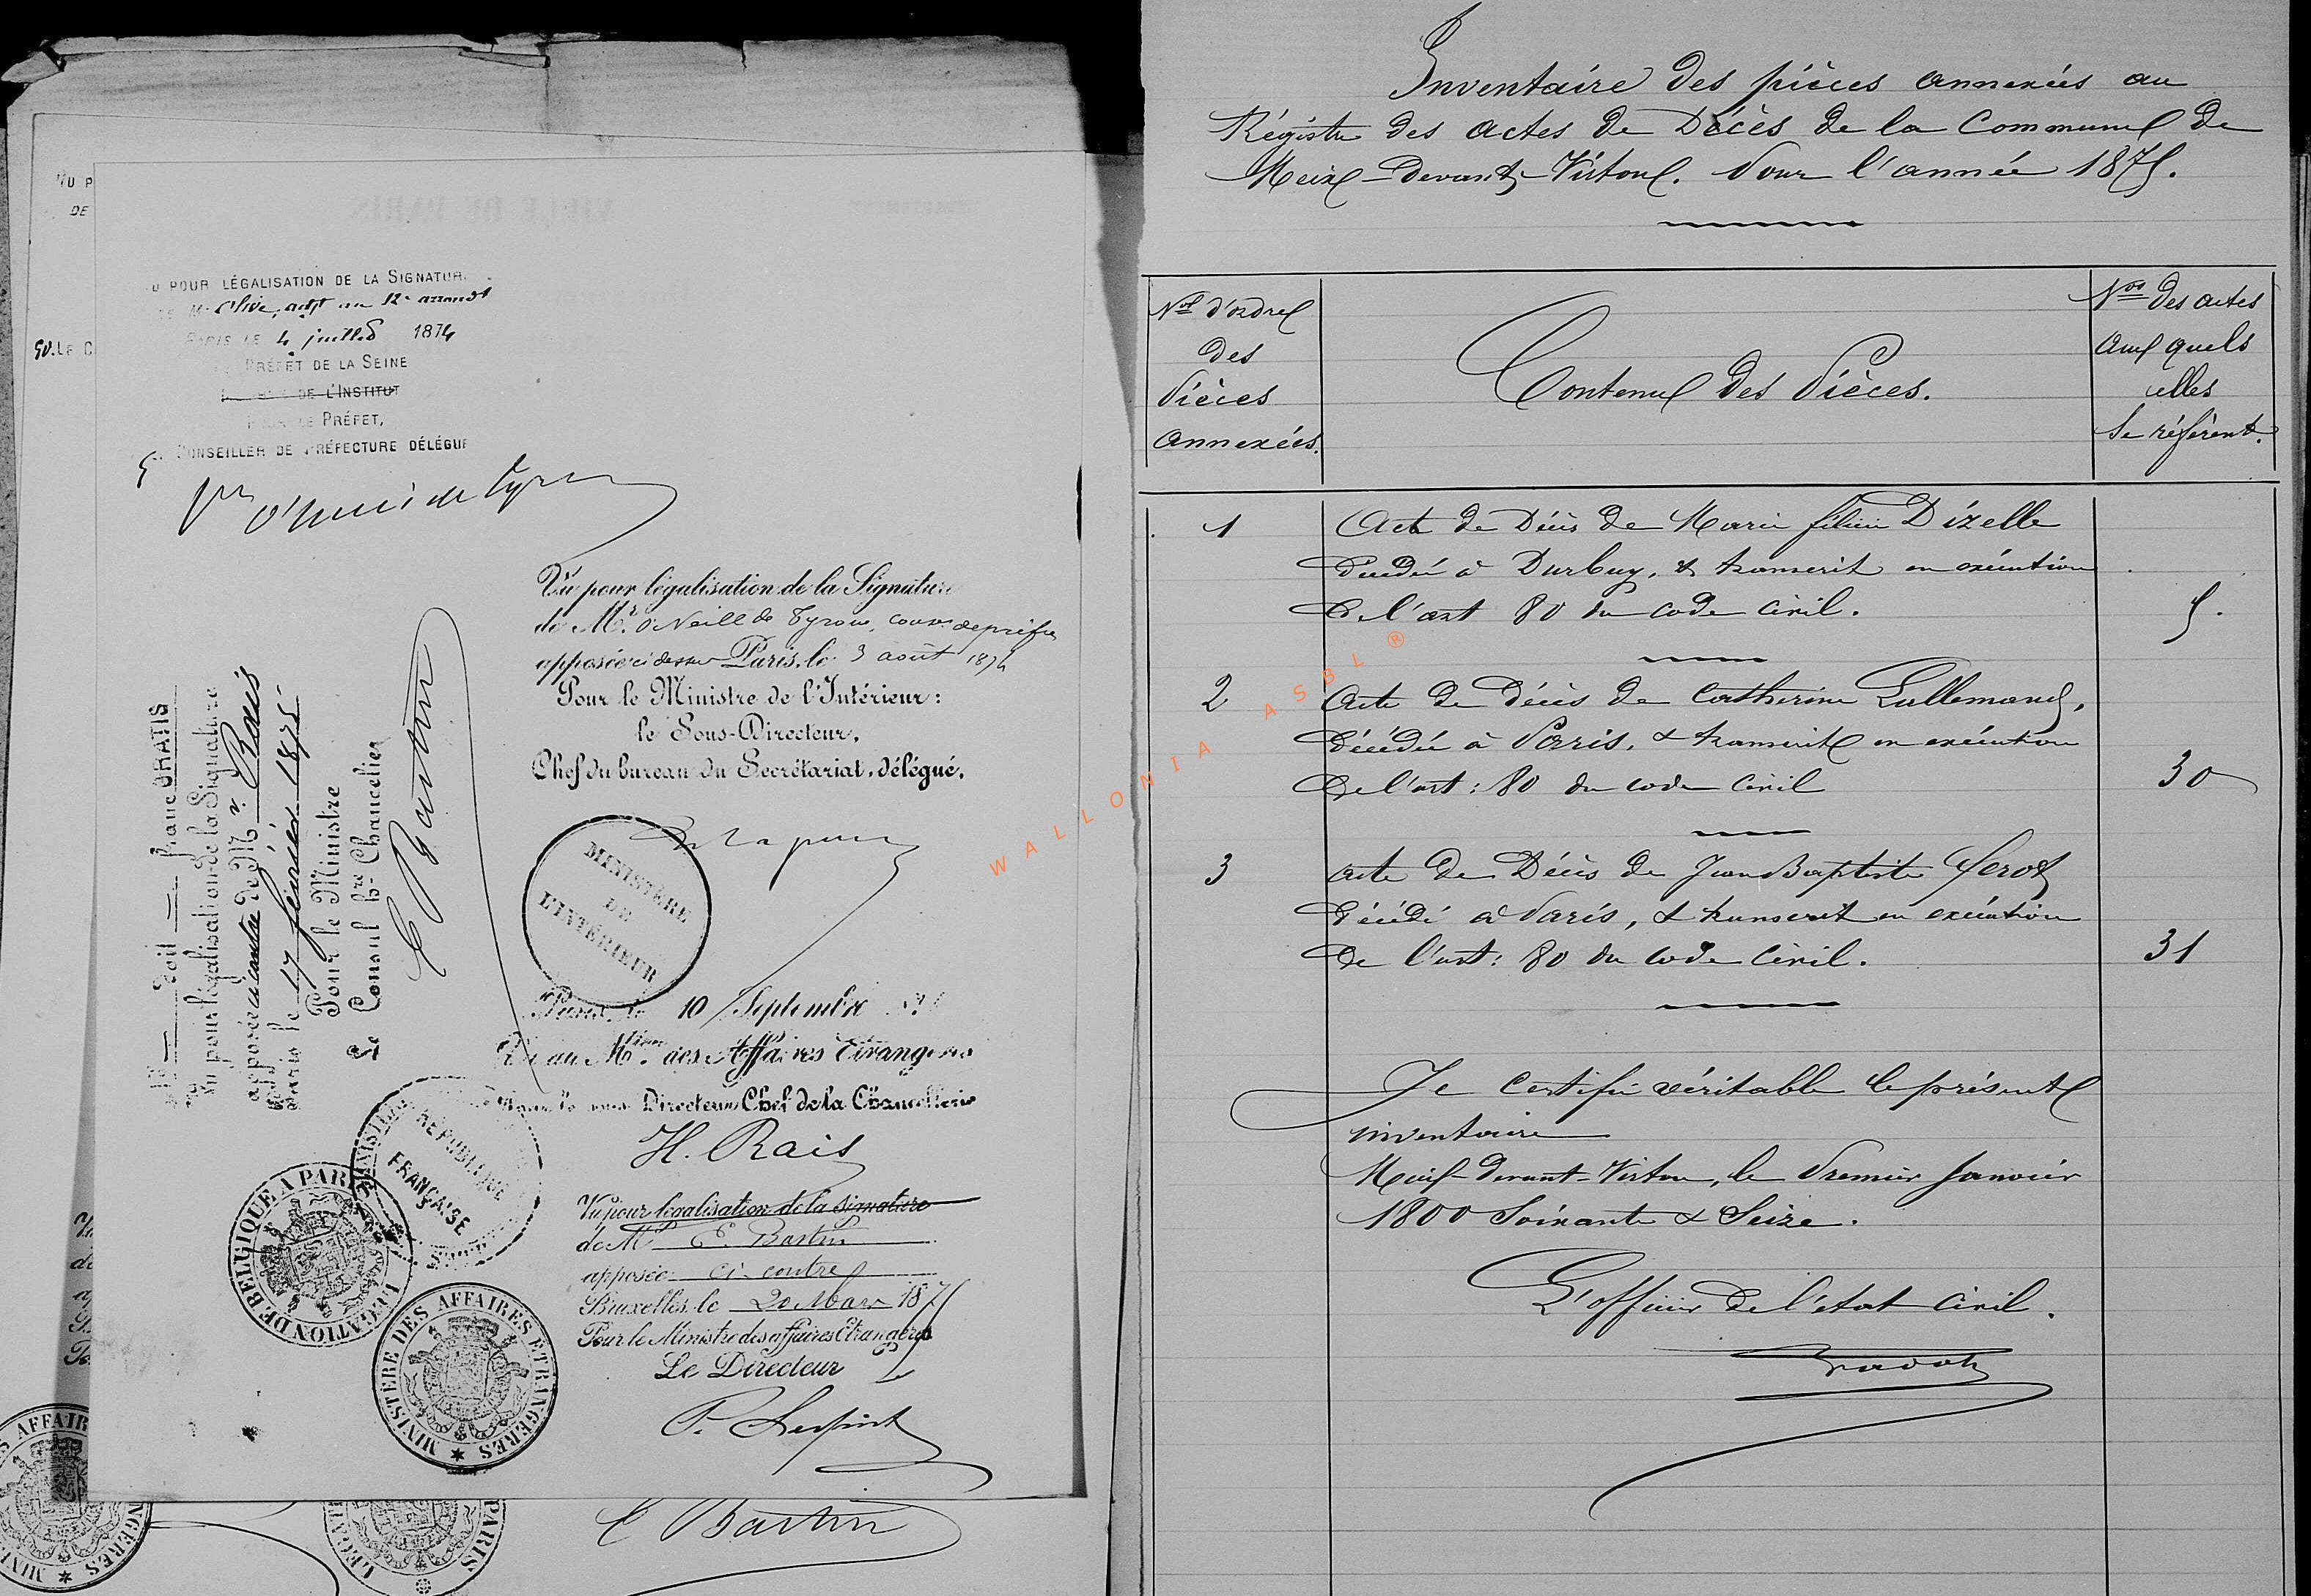 VU POUR LÉGALISATION DE LA SIGNATURE
M. Olive, adjt au 12e arrondt
PARIS LE 4 juillet 1874
PRÉFET DE LA SEINE
DE L'INSTITUT
POUR LE PRÉFET,
CONSEILLER DE PRÉFECTURE DÉLÉGUÉ
Vu pour légalisation de la Signature
de Mr. O'Neill de Tyrone, cons de préfre
apposée ci dessus Paris, le 3 août 1874
Pour le Ministre de l'Intérieur:
le Sous-Directeur,
Chef du bureau du Secrétariat, délégué,
MINISTÈRE
DE
L'INTÉRIEUR
Paris, le 10 Septembre
Vu au Mtère des Affaires Etrangères
Pour le sous Directeur Chef de la Chancellerie
H. Rais
droit franc GRATIS
Vu pour légalisation de la Signature
apposée ci contre de Mr. Rais
Paris le 17 février 1875
Pour le Ministre
Le Consul 1er Chancelier
E Bartin
RÉPUBLIQUE
FRANÇAISE
LÉGATION DE BELGIQUE A PARIS
Vu pour légalisation de la signature
de Mr E. Bartin
apposée ci-contre
Bruxelles, le 20 Mars 1875
Pour le Ministre des affaires Etrangères
Le Directeur
MINISTÈRE DES AFFAIRES ETRANGÈRES
E Bartin
Inventaire des pièces annexées au
Régistre des actes de Décès de la Commune de
Meix-devant-Virton. Pour l'année 1875.
Nos d'ordre
des
Pièces
annexées.
Contenu des Pièces.
Nos des actes
aux quels
elles
se réfèrent.
1 Acte de Décès de Marie félicie Dizelle
décédée à Durbuy, & transcrit en exécution
de l'art 80 du code civil. 5.
2 Acte de décès de Catherine Lallemand,
décédée à Paris, & transcrit en exécution
de l'art: 80 du code civil 30
3 acte de Décès de Jean Baptiste Gerot
décédé à Paris, & transcrit en exécution
de l'art: 80 du code civil. 31
Je certifie véritable le présent
inventaire
Meix-devant-Virton, le Premier Janvier
1800 Soixante & Seize.
L'officier de l'état civil.
WALLONIA ASBL ®